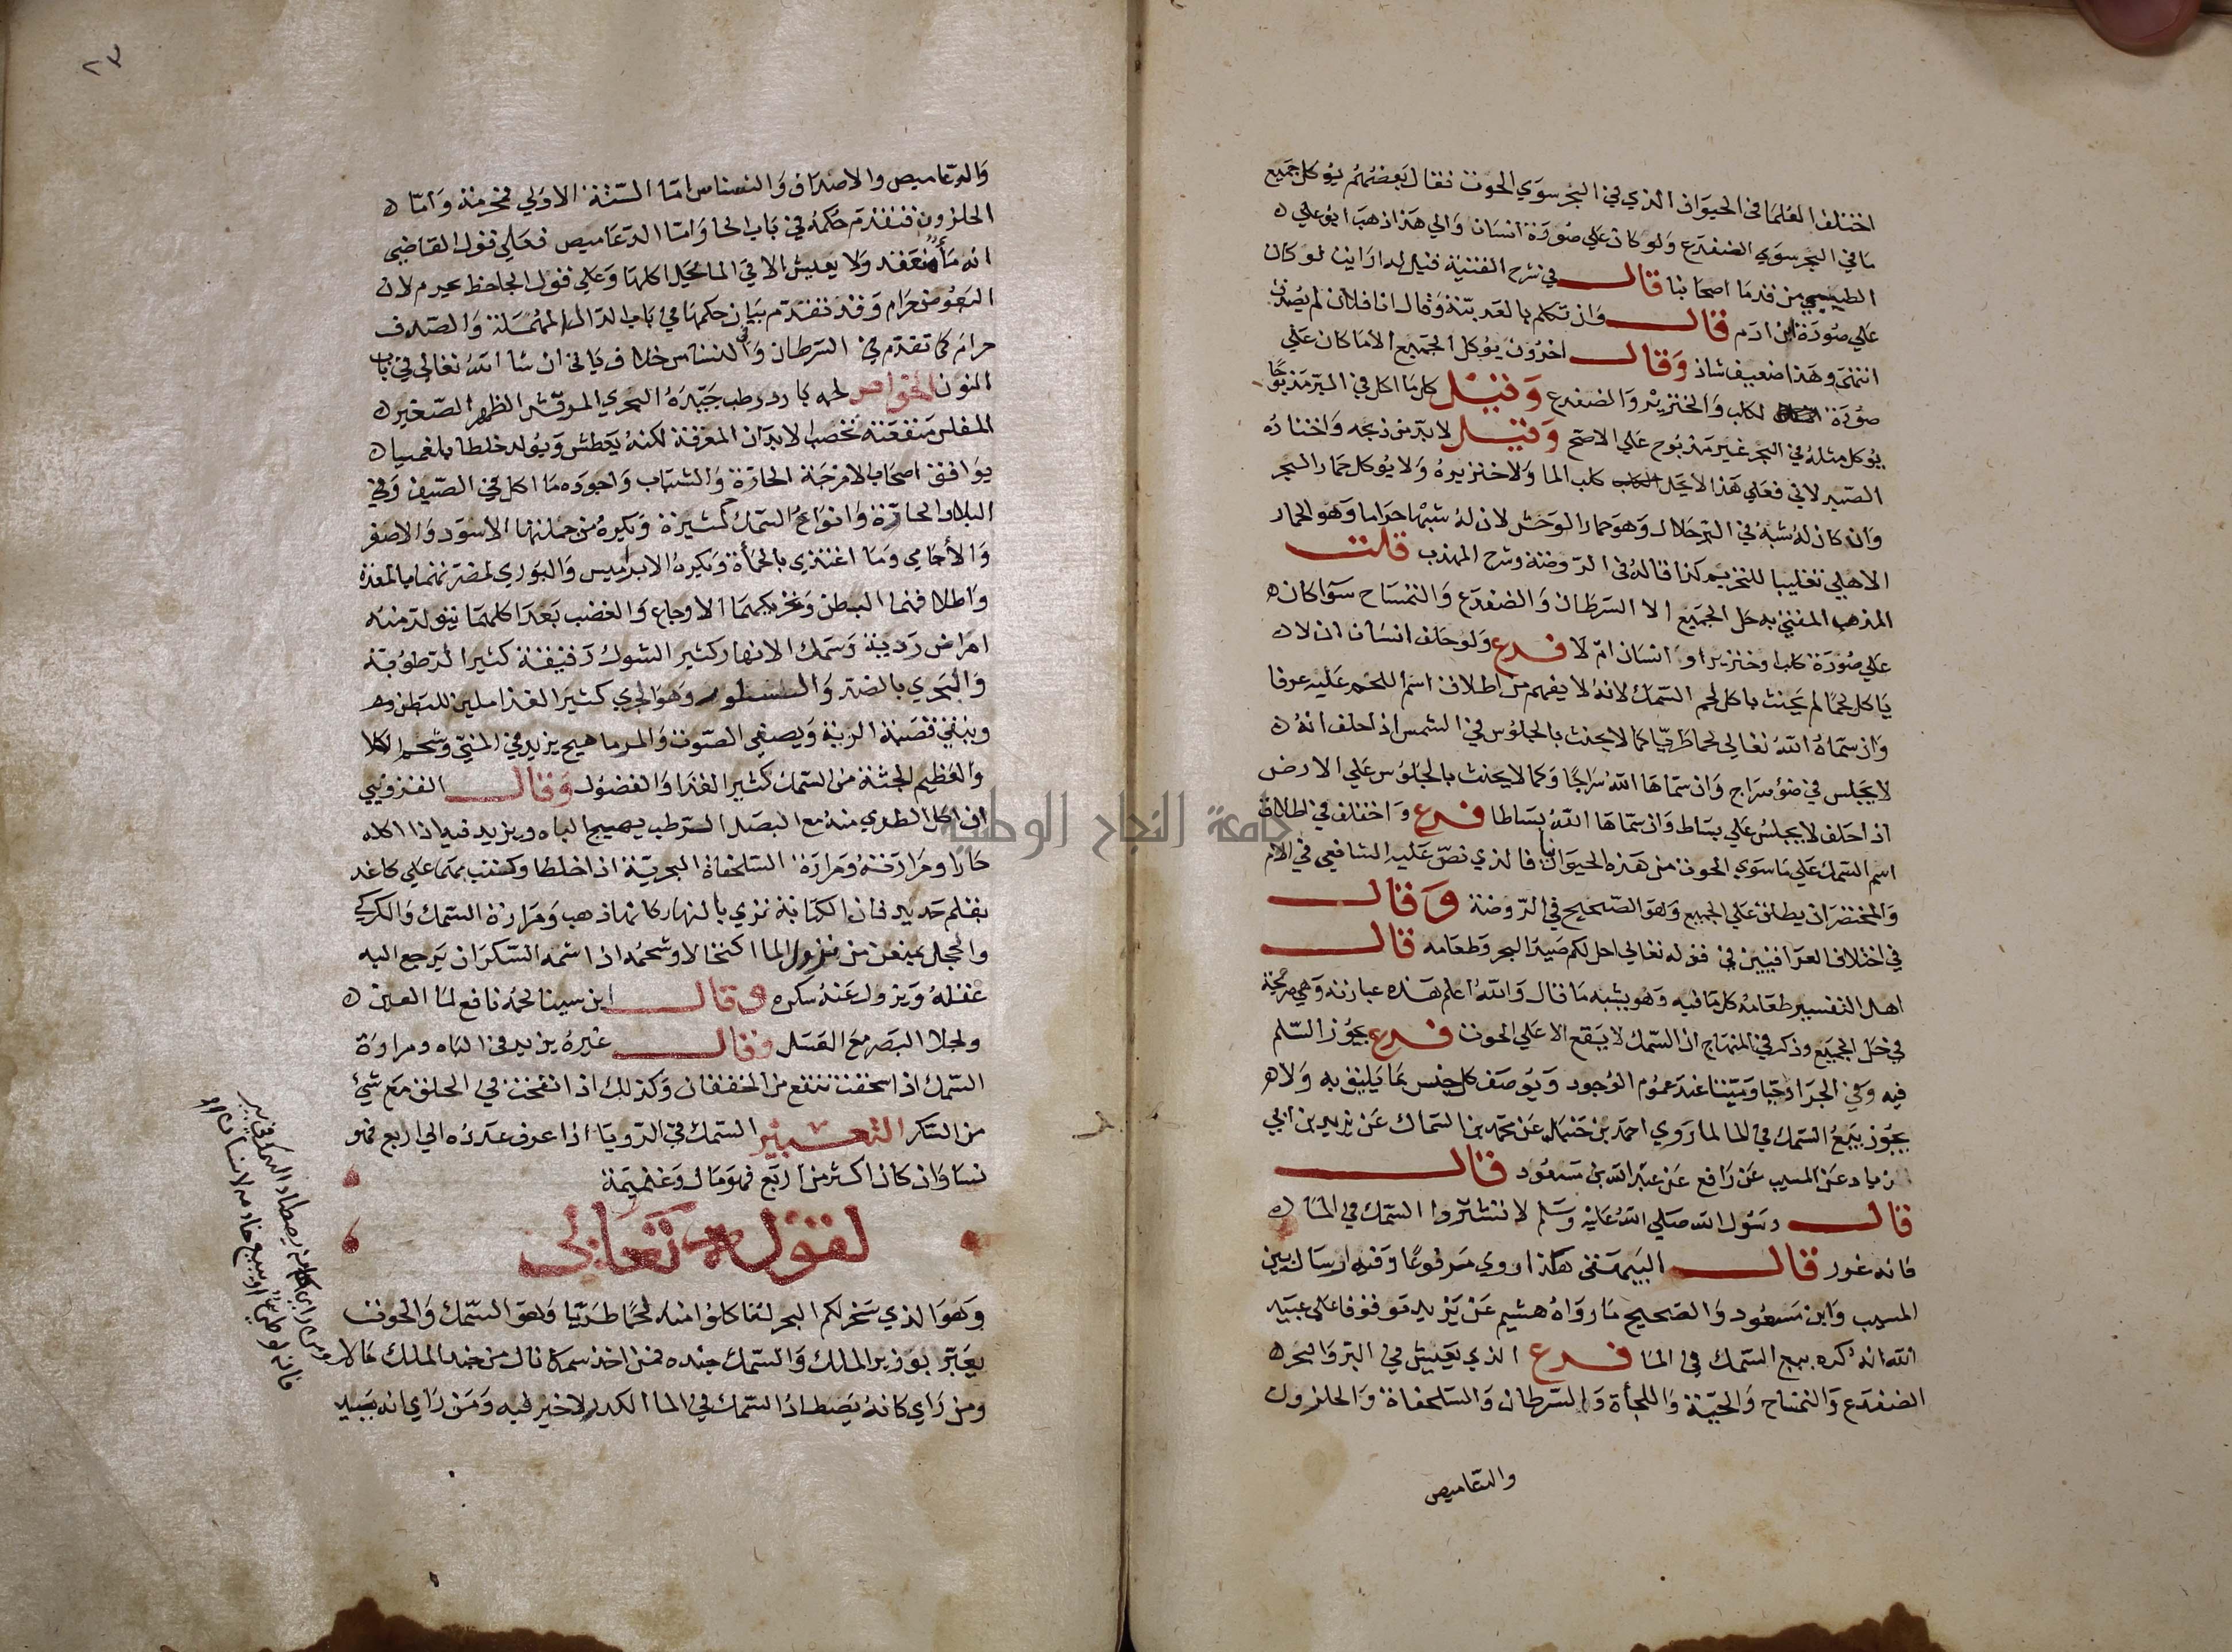 اختلف العلما في الحيوان الذي في البحر سوي الحوت فقال بعضهم يوكل جميع
ما في البحر سوي الضفدع ولو كان علي صورة انسان والي هذا ذهب ابو علي
الطيبي من قدما اصحابنا قال في شرح القنية قيل له ارايت لو كان
علي صورة ابن ادم قال وان تكلم بالعربية وقال انا فلان لم يصدق
انتهي وهذا ضعيف شاذ وقال اخرون يوكل الجميع الا ما كان علي
صورة الكلب والخنزير والضفدع وقيل كل ما اكل في البر مذبوحا
يوكل مثله في البحر غير مذبوح علي الاصح وقيل لا بد من ذبحه واختاره
الصيرلاني فعلي هذا لا يحل كلب الما ولا خنزيره ولا يوكل حمار البحر
وان كان له شبه في البر حلال وهو حمار الوحش لان له شبها حراما وهو الحمار
الاهلي تغليبا للتحريم كذا قاله في الروضة وشرح المهذب قلت
المذهب المفتي به حل الجميع الا السرطان والضفدع والتمساح سوا كان
علي صورة كلب او خنزير او انسان ام لا فرع ولو حلف انسان ان لا
ياكل لحما لم يحنث باكل لحم السمك لانه لا يفهم من اطلاق اسم اللحم عليه عرفا
وان سماه الله تعالي لحما طريا كما لا يحنث بالجلوس في الشمس اذا حلف انه
لا يجلس في ضو سراج وان سماها الله سراجا وكما لا يحنث بالجلوس علي الارض
اذا حلف لا يجلس علي بساط وان سماها الله بساطا فرع واختلف في اطلاق
اسم السمك علي ما سوي الحوت من هذه الحيوانات فالذي نص عليه الشافعي في الام
والمختصر ان يطلق علي الجميع وهو الصحيح في الروضة وقال
في اختلاف العراقيين في قوله تعالي احل لكم صيد البحر وطعامه قال
اهل التفسير طعامه كل ما فيه وهو يشبه ما قال والله اعلم هذه عبارته وهي صريحة
في حل الجميع وذكر في المنهاج ان السمك لا يقع الا علي الحوت فرع يجوز السلم
فيه وفي الجراد حيا وميتا عند عموم الوجود ويوصف كل جنس بما يليق به ولا
يجوز بيع السمك في الما لما روي احمد بن حنبل عن محمد بن السماك عن يزيد بن ابي
زياد عن المسيب عن رافع عن عبد الله بن مسعود قال
قال رسول الله صلي الله عليه وسلم لا تشتروا السمك في الما
فانه غرر قال البيهقي هكذا روي مرفوعا وفيه ارسال بين
المسيب وابن مسعود والصحيح ما رواه هشيم عن يزيد موقوفا علي عبد
الله انه كره بيع السمك في الما فرع الذي يعيش في البر والبحر
الضفدع والتمساح والحية واللجأة والسرطان والسلحفاة والحلزون
والدعاميص
٢٣
والدعاميص والاصداف والنسناس اما الستة الاولي فمحرمة واما
الحلزون فتقدم حكمه في باب الحا واما الدعاميص فعلي قول القاضي
انه ما تعقد ولا يعيش الا في الما فيحل اكلها وعلي قول الجاحظ يحرم لان
البعوض حرام وقد تقدم بيان حكمها في باب الدال المهملة والصدف
حرام كما تقدم في السرطان وفي النسناس خلاف ياتي ان شا الله تعالي في باب
النون الخواص لحمه بارد رطب جيده البحري المرقش الظهر الصغير
المفلس منفعته تخصب الابدان المعرقة لكنه يعطش ويولد خلطا بلغميا
يوافق اصحاب الامزجة الحارة والشباب واجوده ما اكل في الصيف وفي
البلاد الحارة وانواع السمك كثيرة ويكره من جملتها الاسود والاصفر
والأجامي وما اغتذي بالحمأة ويكره الابراميس والبوري لمضرتهما بالمعدة
واطلاقهما البطن وتحريكهما الاوجاع والغضب بعد اكلهما يتولد منه
امراض ردية وسمك الانهار كثير الشوك دقيقة كثير الرطوبة
والبحري بالضد وهو الجري كثير الغذا ملين للبطن
وينقي قصبة الرية ويصفي الصوت والمرماهيج يزيد في المني وشحم الكلا
والعظيم الجثة من السمك كثير الغذا والفضول وقال القزويني
ان اكل الطري منه مع البصل الرطب يهيج الباه ويزيد فيه اذا اكله
حارا ومرارته ومرارة السلحفاة البحرية اذا خلطا وكتب بهما علي كاغد
بقلم حديد فان الكتابة تري بالنهار كانها ذهب ومرارة السمك والكركي
والحجل يمنعن من نزول الما اكتحالا وشحمه اذا شمه السكران يرجع اليه
عقله ويزول عنه سكره وقال ابن سينا لحمه نافع لما العين
ولجلا البصر مع العسل وقال غيره يزيد في الباه ومرارة
السمك اذا سحقت تنفع من الخفقان وكذلك اذا انفخت في الحلق مع شي
من السكر التعبير السمك في الرويا اذا عرف عدده الي اربع فهو
نسا وان كان اكثر من اربع فهو مال وغنيمة
لقوله تعالي
وهو الذي سخر لكم البحر لتاكلوا منه لحما طريا وهو السمك والحوت
يعبر بوزير الملك والسمك جنده فمن اخذ سمكا نال من جند الملك مالا
ومن راي كانه يصطاد السمك في الما الكدر لا خير فيه ومن راي انه يصيد